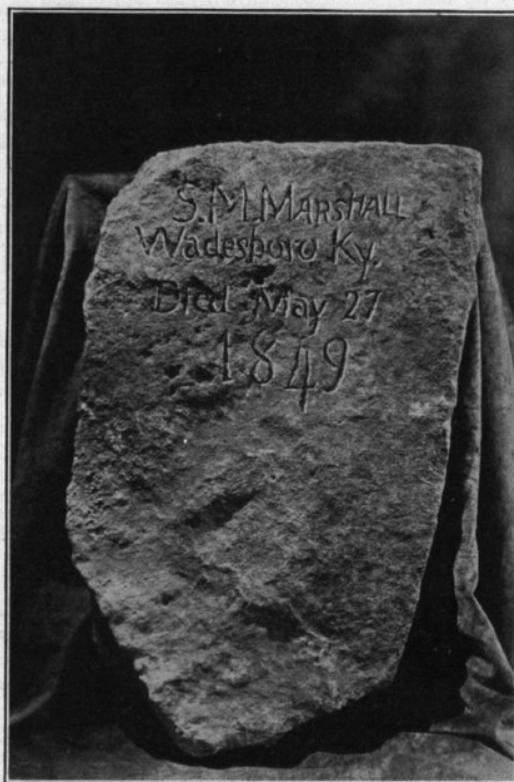 S. M. MARSHALL
Wadesboro Ky.
Died May 27
1849